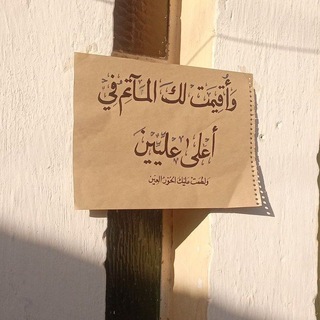 وَأُقيمَت لكَ المَآتِم في
أعلىٰ عليّينَ
وَلطَمَت عَليكَ الحُورُ العِين